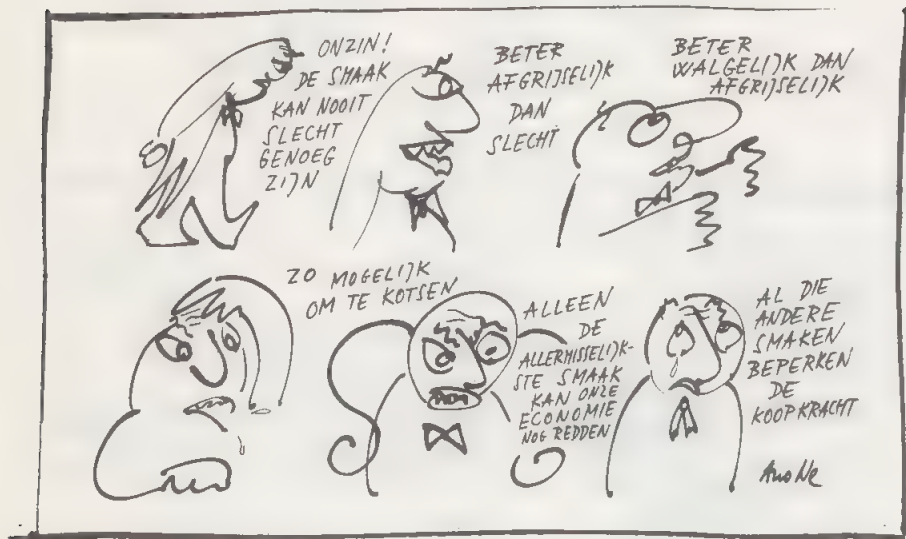 ONZIN!
DE SMAAK
KAN NOOIT
SLECHT
GENOEG
ZIJN
BETER
AFGRIJSELIJK
DAN
SLECHT
BETER
WALGELIJK DAN
AFGRIJSELIJK
ZO MOGELIJK
OM TE KOTSEN
ALLEEN
DE
ALLERMISSELIJK-
STE SMAAK
KAN ONZE
ECONOMIE
NOG REDDEN
AL DIE
ANDERE
SMAKEN
BEPERKEN
DE
KOOPKRACHT